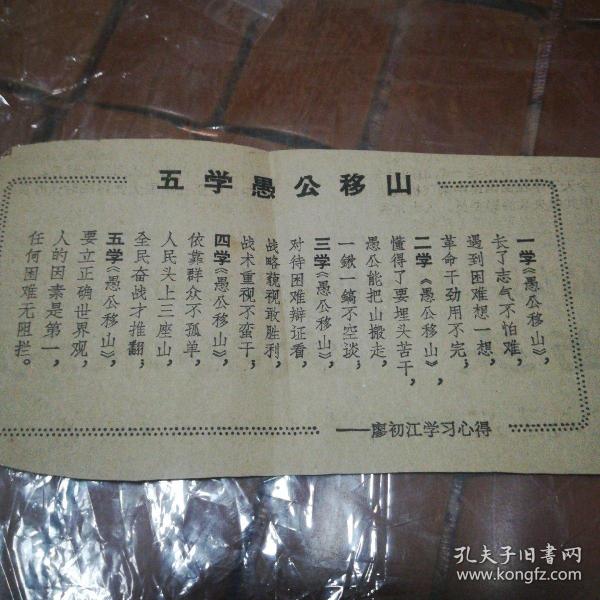 五学愚公移山
一学《愚公移山》，
长了志气不怕难，
遇到困难想一想，
革命干劲用不完；
二学《愚公移山》，
懂得了要埋头苦干，
愚公能把山搬走，
一鍬一鎬不空谈；
三学《愚公移山》，
对待困难辩证看，
战略藐视敢胜利，
战术重视不蛮干；
四学《愚公移山》，
依靠群众不孤单，
人民头上三座山，
全民奋战才推翻；
五学《愚公移山》，
要立正确世界观，
人的因素是第一，
任何困难无阻拦。
——廖初江学习心得
孔夫子旧書网
www.kongfz.com